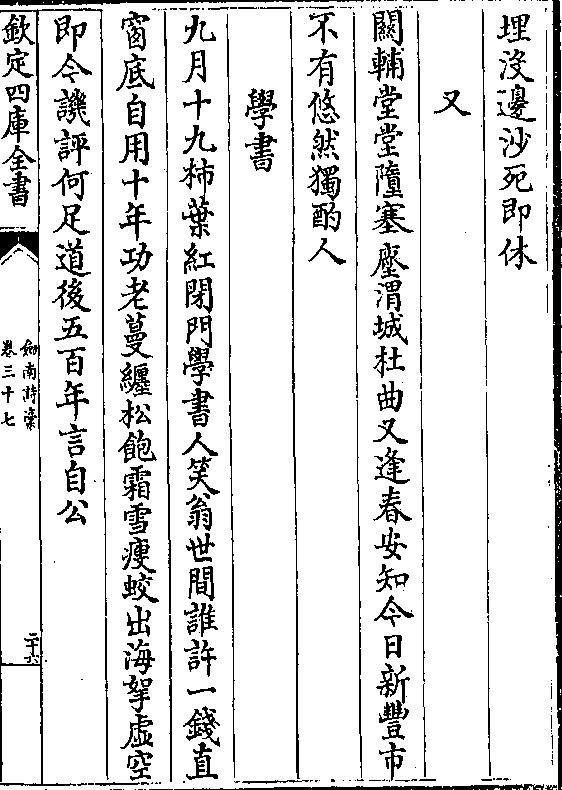 埋沒邊沙死即休
又
關輔堂堂墮塞塵渭城杜曲又逢春安知今日新豐市
不有悠然獨酌人
學書
九月十九柿葉紅閉門學書人笑翁世間誰許一錢直
窗底自用十年功老蔓纏松飽霜雪瘦蛟出海拏虛空
即今譏評何足道後五百年言自公
欽定四庫全書
劍南詩藁
卷三十七
二十六